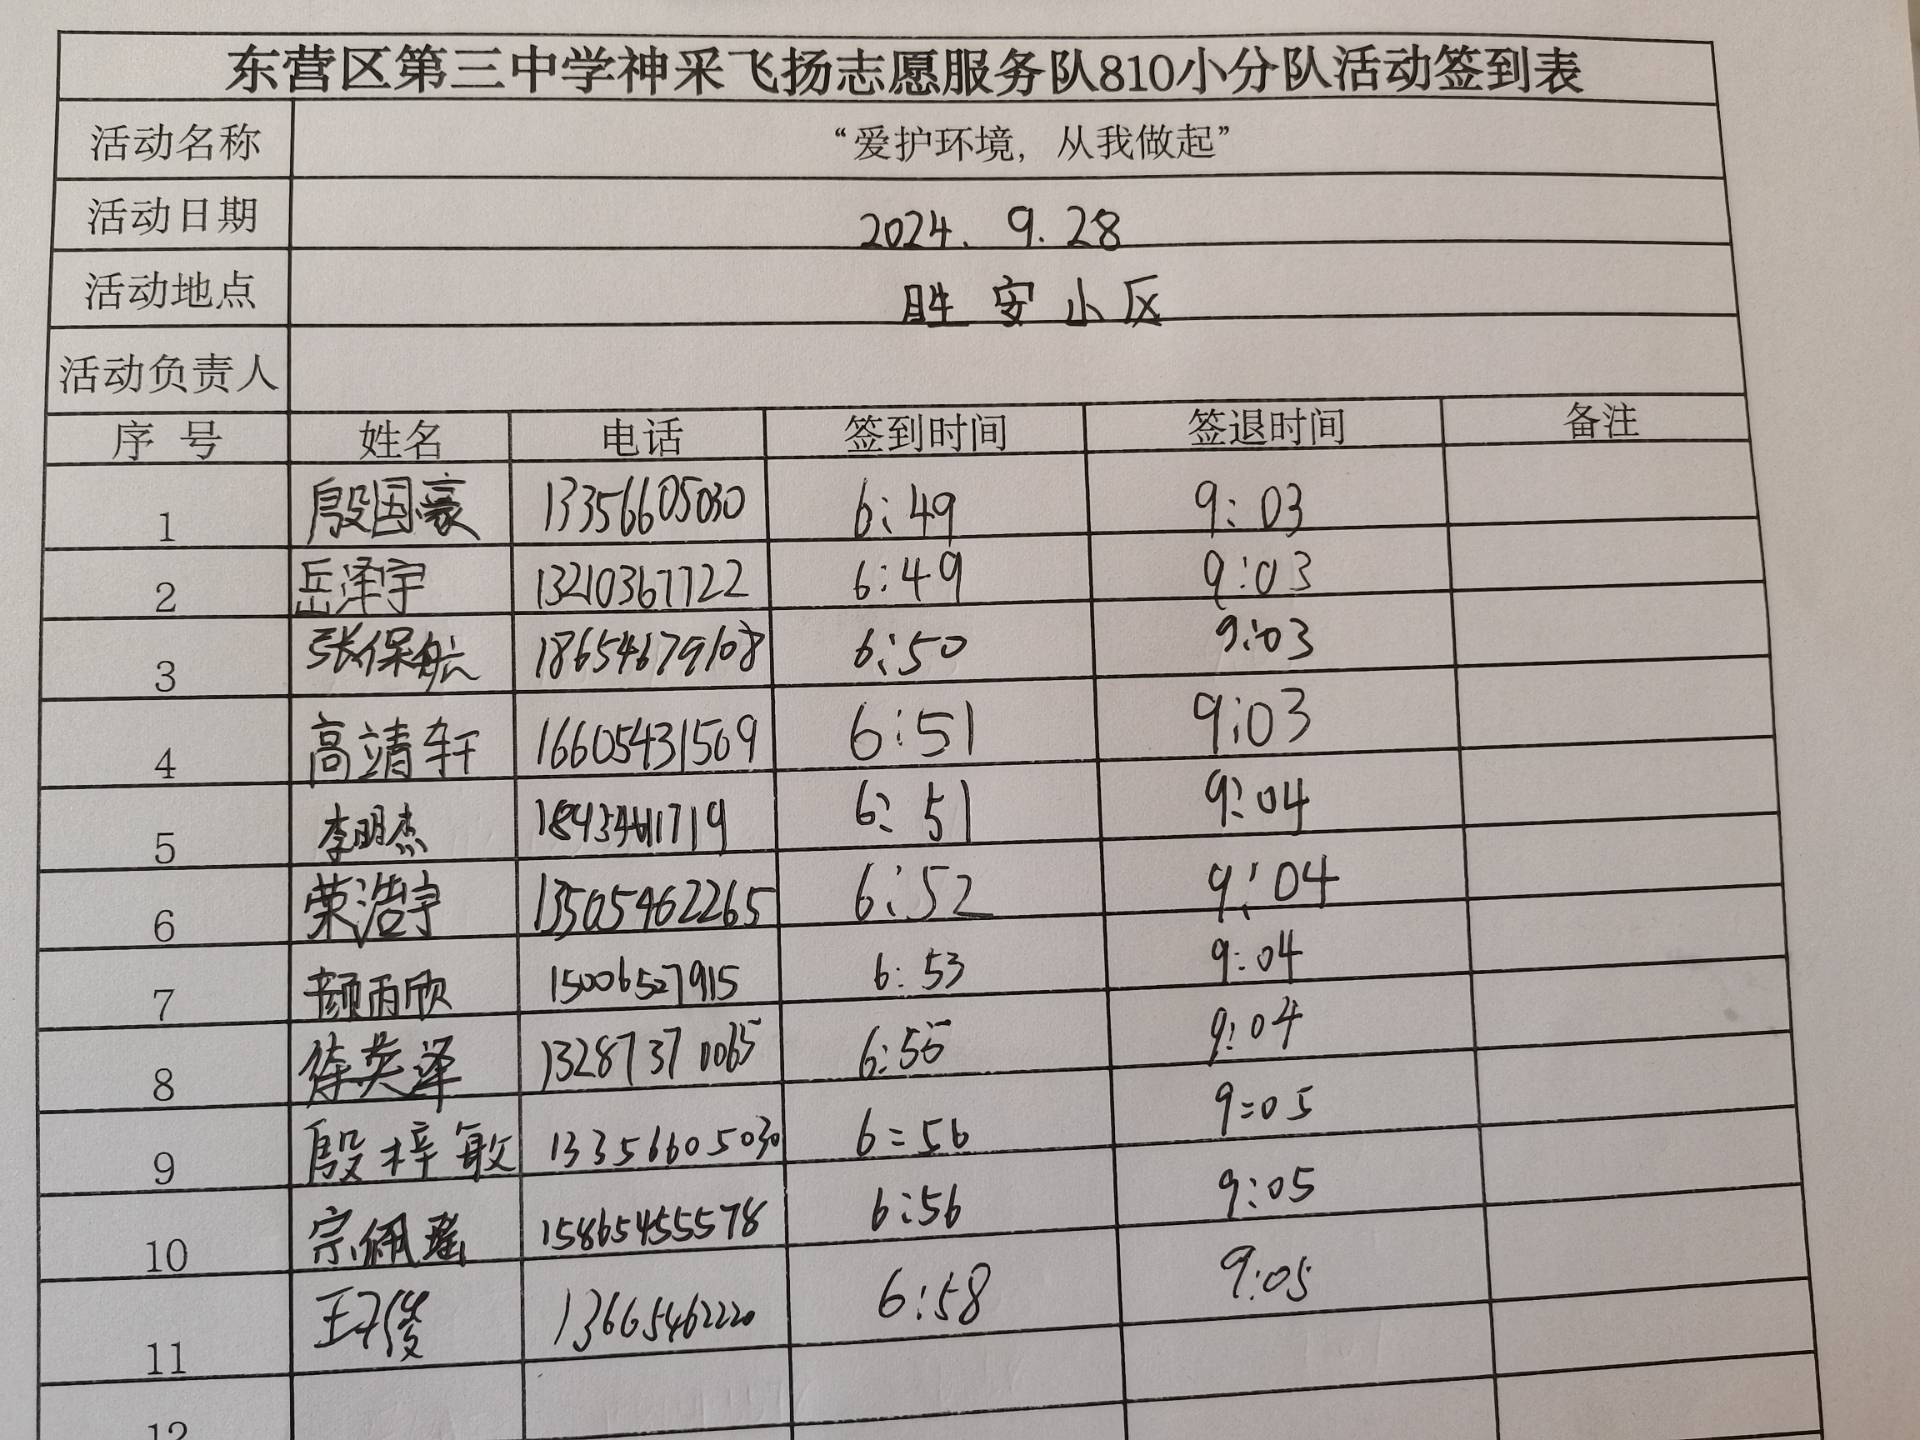 东营区第三中学神采飞扬志愿服务队810小分队活动签到表
活动名称 “爱护环境，从我做起”
活动日期 2024.9.28
活动地点 胜安小区
活动负责人
序 号 姓名 电话 签到时间 签退时间 备注
1 殷国豪 13356605030 6:49 9:03
2 岳泽宇 13210367722 6:49 9:03
3 张保航 18654679108 6:50 9:03
4 高靖轩 16605431509 6:51 9:03
5 李明杰 6:51 9:04
6 荣浩宇 13505462265 6:52 9:04
7 颜雨欣 15006527915 6:53 9:04
8 徐英泽 13287371065 6:55 9:04
9 殷梓敏 13356605030 6:56 9:05
10 宗佩瑶 15865455578 6:56 9:05
11 13665462220 6:58 9:05
12